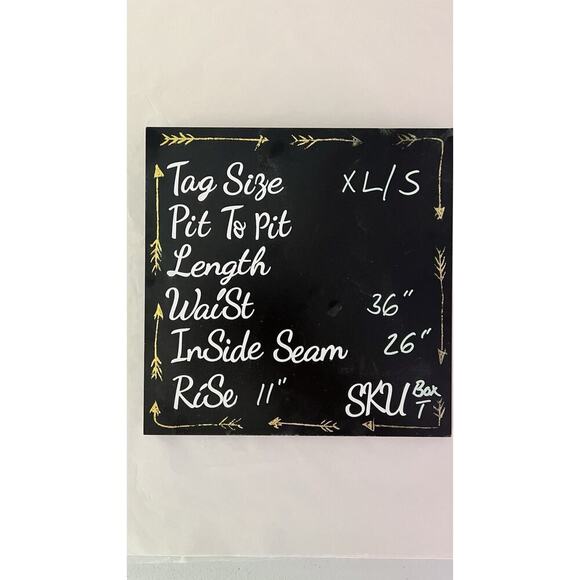 Tag Size XL/S
Pit To Pit
Length
Waist 36"
InSide Seam 26"
RiSe 11" SKU Box T